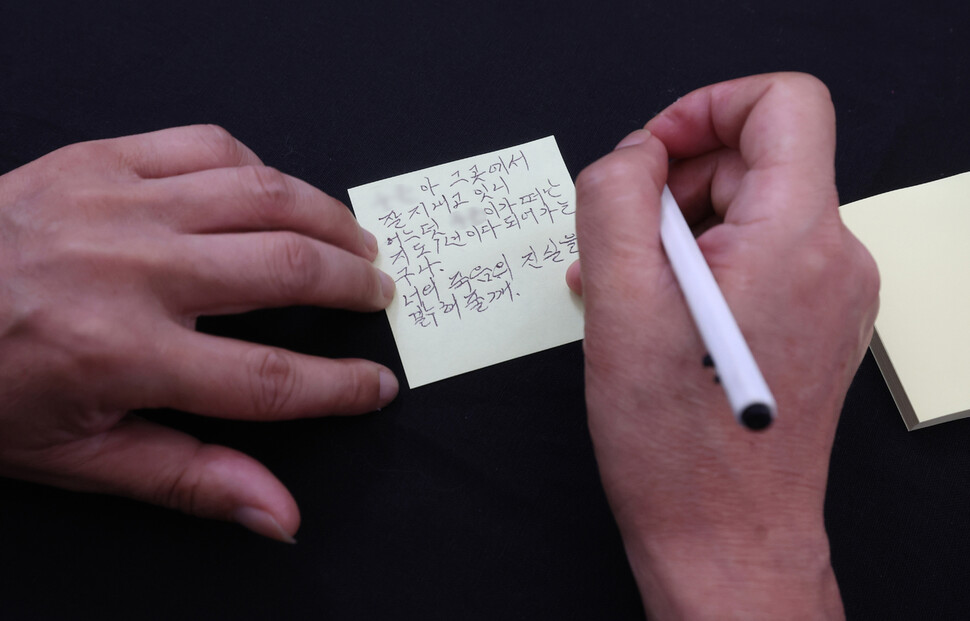 아 그곳에서
잘 지내고 있니
어느덧 이가 떠난
지도 7년이 다 되어가는
구나.
너의 죽음의 진실을
밝혀 줄게.